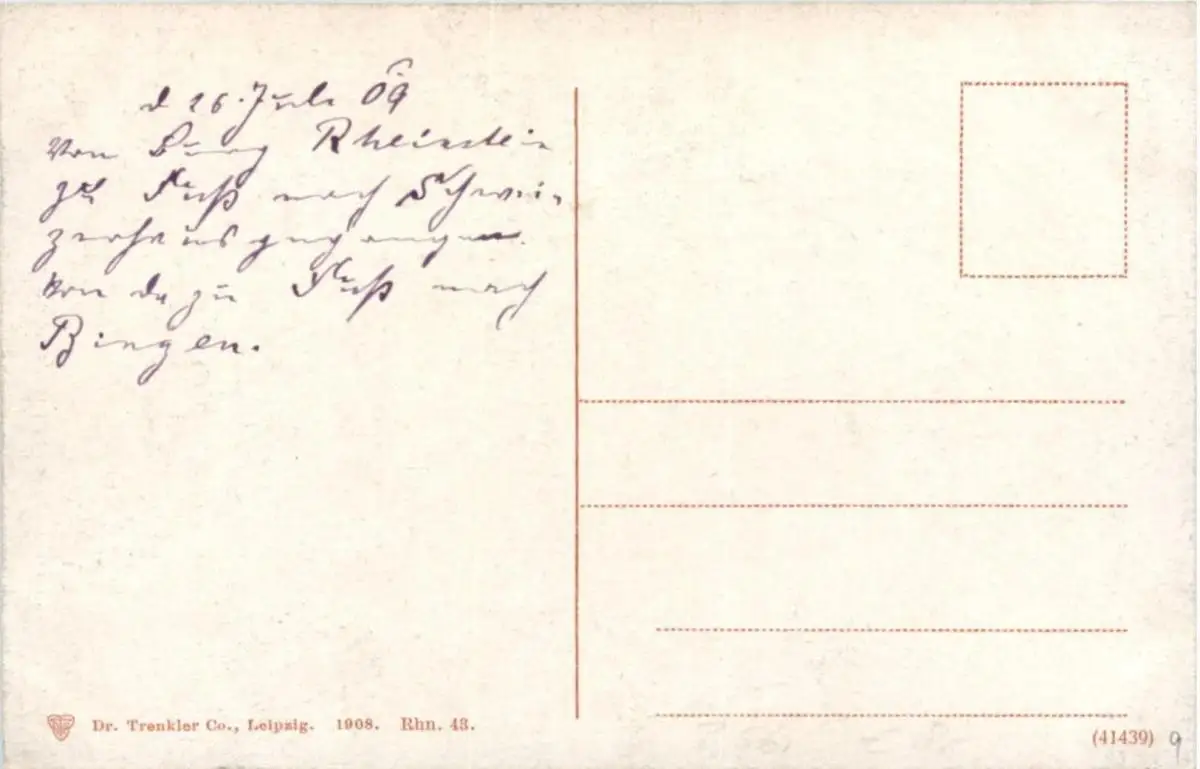 d 26. Juli 09
Von Burg Rheinstein
zu Fuß nach Schwei-
zerhaus gegangen.
Von da zu Fuß nach
Bingen.
Dr. Trenkler Co., Leipzig. 1908. Rhn. 43.
(41439) 9